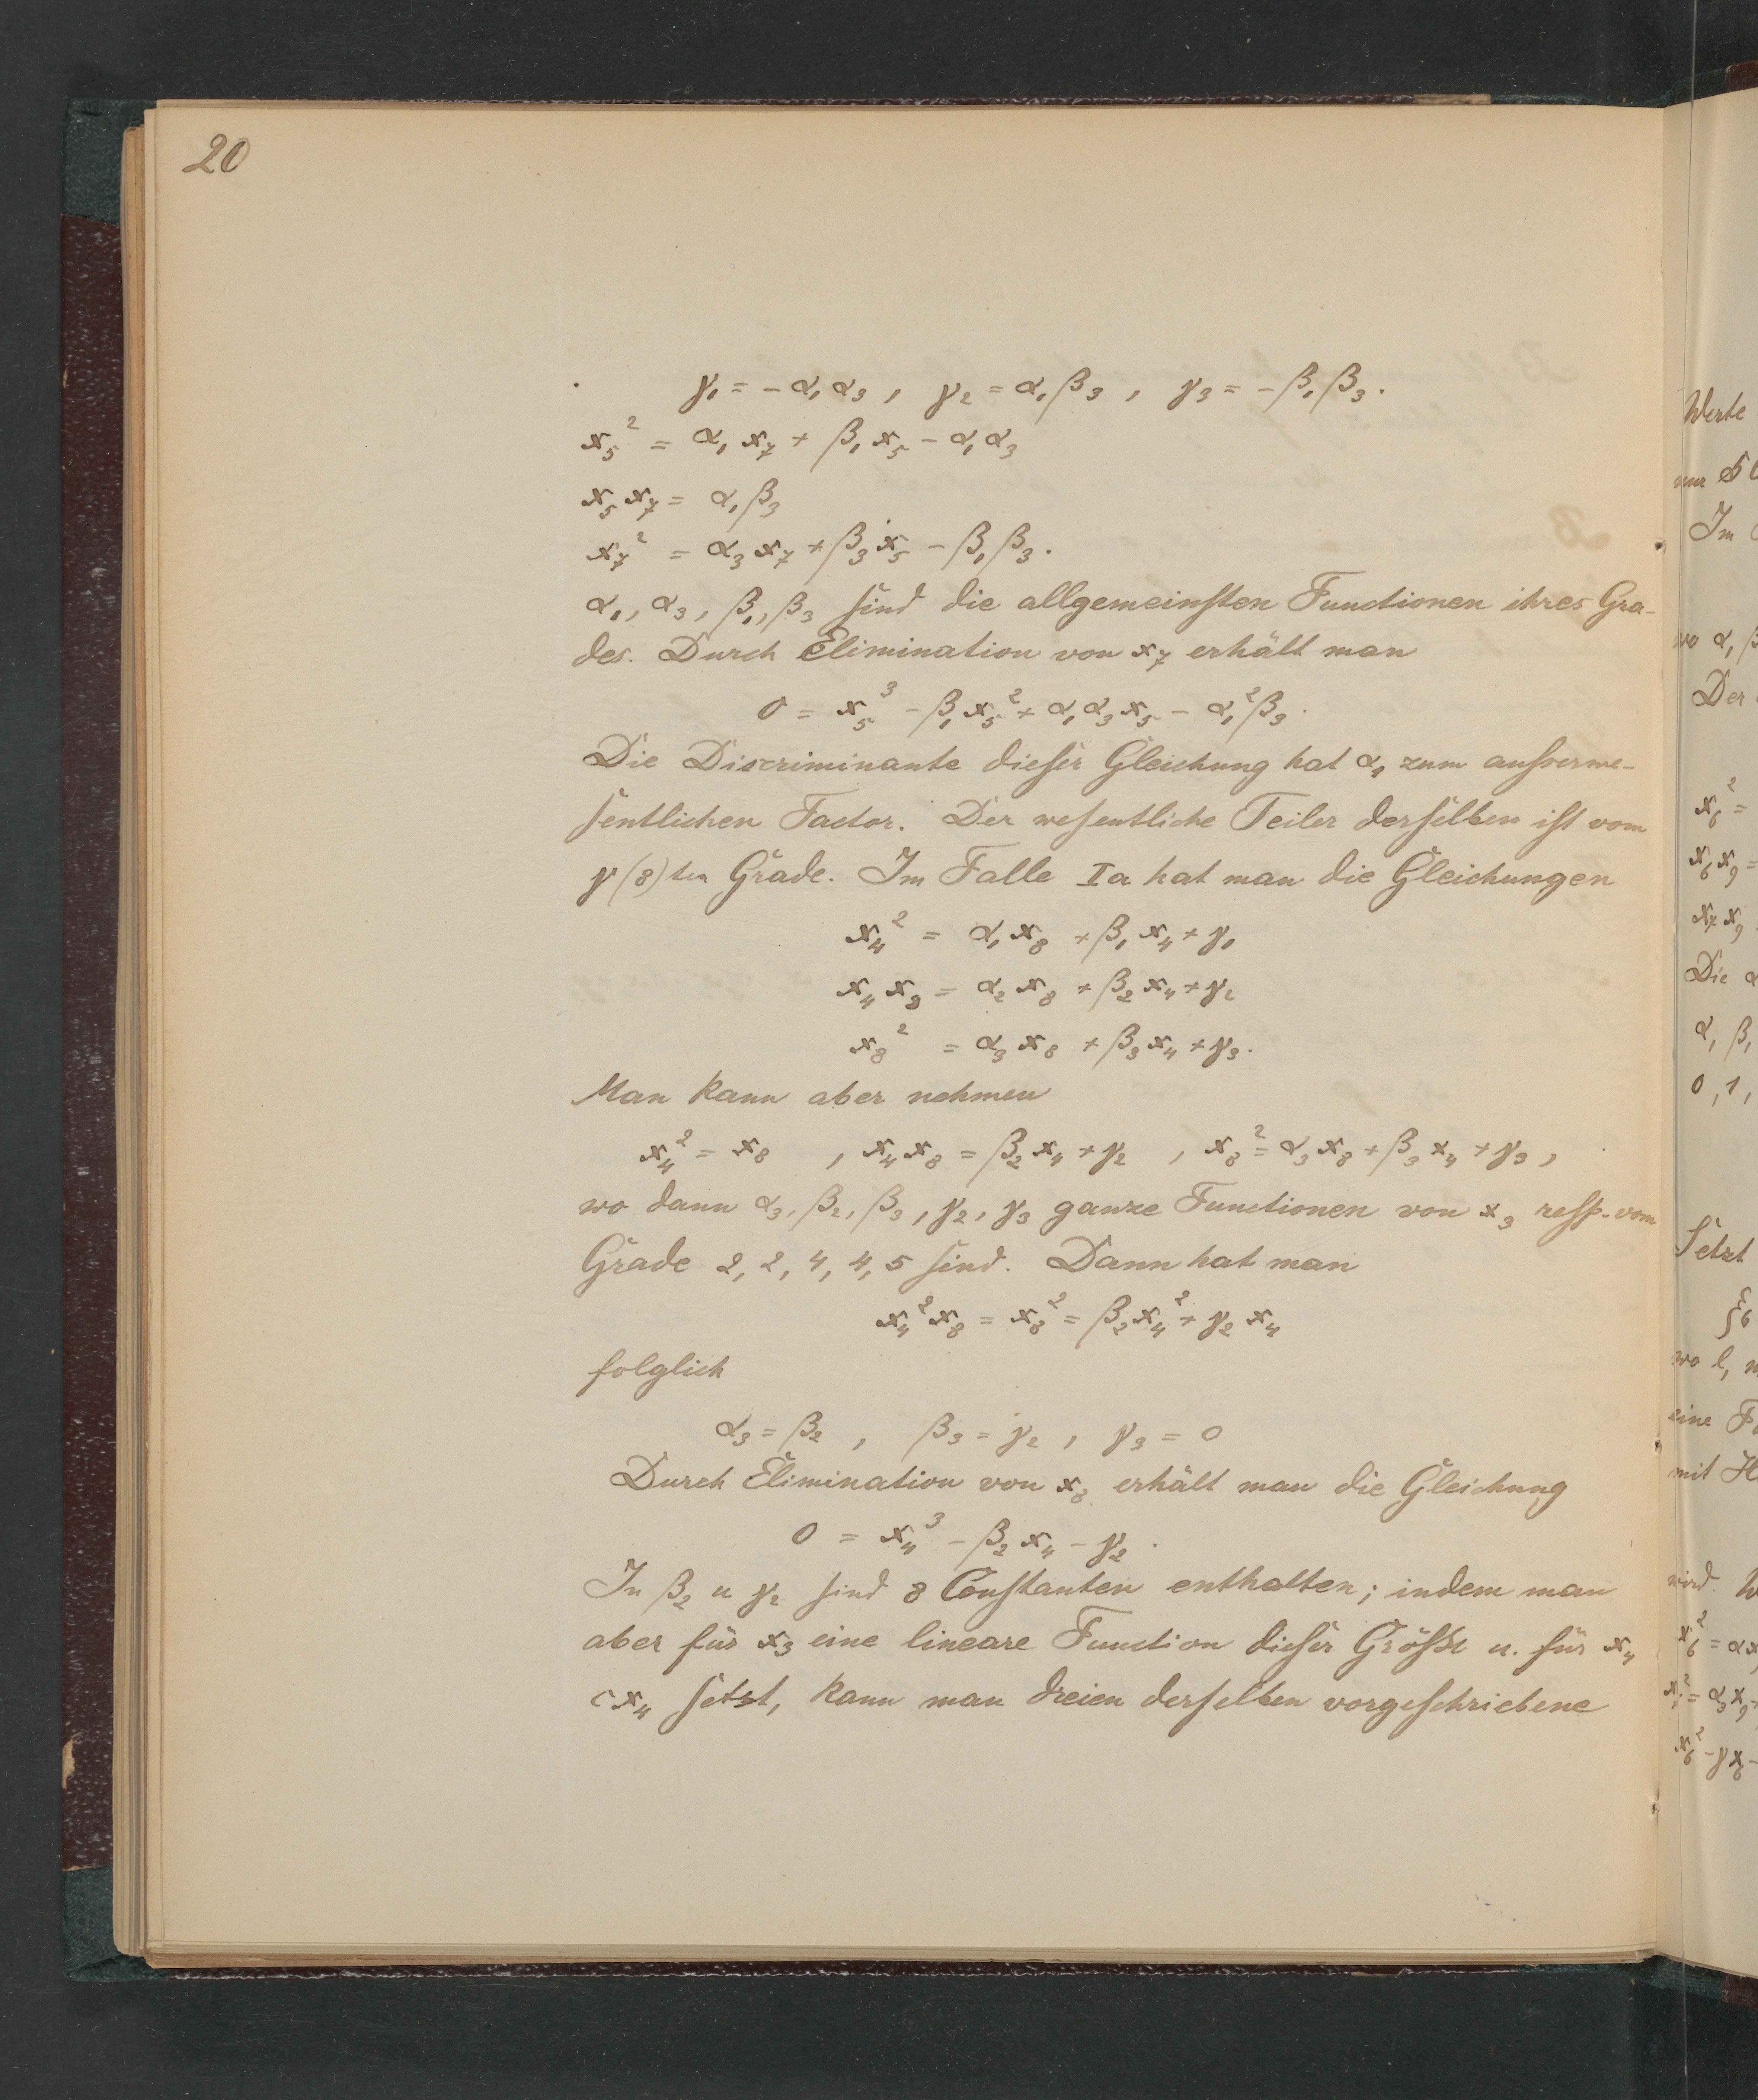 20
γ₁ = − α₁α₃ , γ₂ = α₁β₃ , γ₃ = − β₁β₃.
x₅² = α₁x₇ + β₁x₅ − α₁α₃
x₅x₇ = α₁β₃
x₇² = α₃x₇ + β₃x₅ − β₁β₃.
α₁, α₃, β₁, β₃ sind die allgemeinsten Functionen ihres Gra-
des. Durch Elimination von x₇ erhält man
0 = x₅³ − β₁x₅² + α₁α₃x₅ − α₁²β₃.
Die Discriminante dieser Gleichung hat α₁ zum ausserwe-
sentlichen Factor. Der wesentliche Teiler derselben ist vom
γ(8)ten Grade. Im Falle Ia hat man die Gleichungen
x₄² = α₁x₈ + β₁x₄ + γ₁
x₄x₈ = α₂x₈ + β₂x₄ + γ₂
x₈² = α₃x₈ + β₃x₄ + γ₃.
Man kann aber nehmen
x₄² = x₈ , x₄x₈ = β₂x₄ + γ₂ , x₈² = α₃x₈ + β₃x₄ + γ₃,
wo dann α₃, β₂, β₃, γ₂, γ₃ ganze Functionen von x₃ resp. vom
Grade 2, 2, 4, 4, 5 sind. Dann hat man
x₄²x₈ = x₈² = β₂x₄² + γ₂x₄
folglich
α₃ = β₂ , β₃ = γ₂ , γ₃ = 0
Durch Elimination von x₈ erhält man die Gleichung
0 = x₄³ − β₂x₄ − γ₂.
In β₂ u γ₂ sind 8 Constanten enthalten; indem man
aber für x₃ eine lineare Function dieser Grösse u. für x₄
cx₄ setzt, kann man dreien derselben vorgeschriebene
Werte
Im
wo α, β
Der
x₆² =
x₆x₉ =
x₇x₉
Die α
α, β,
0, 1,
Setzt
ξ₆
wo l,
eine
mit
wird.